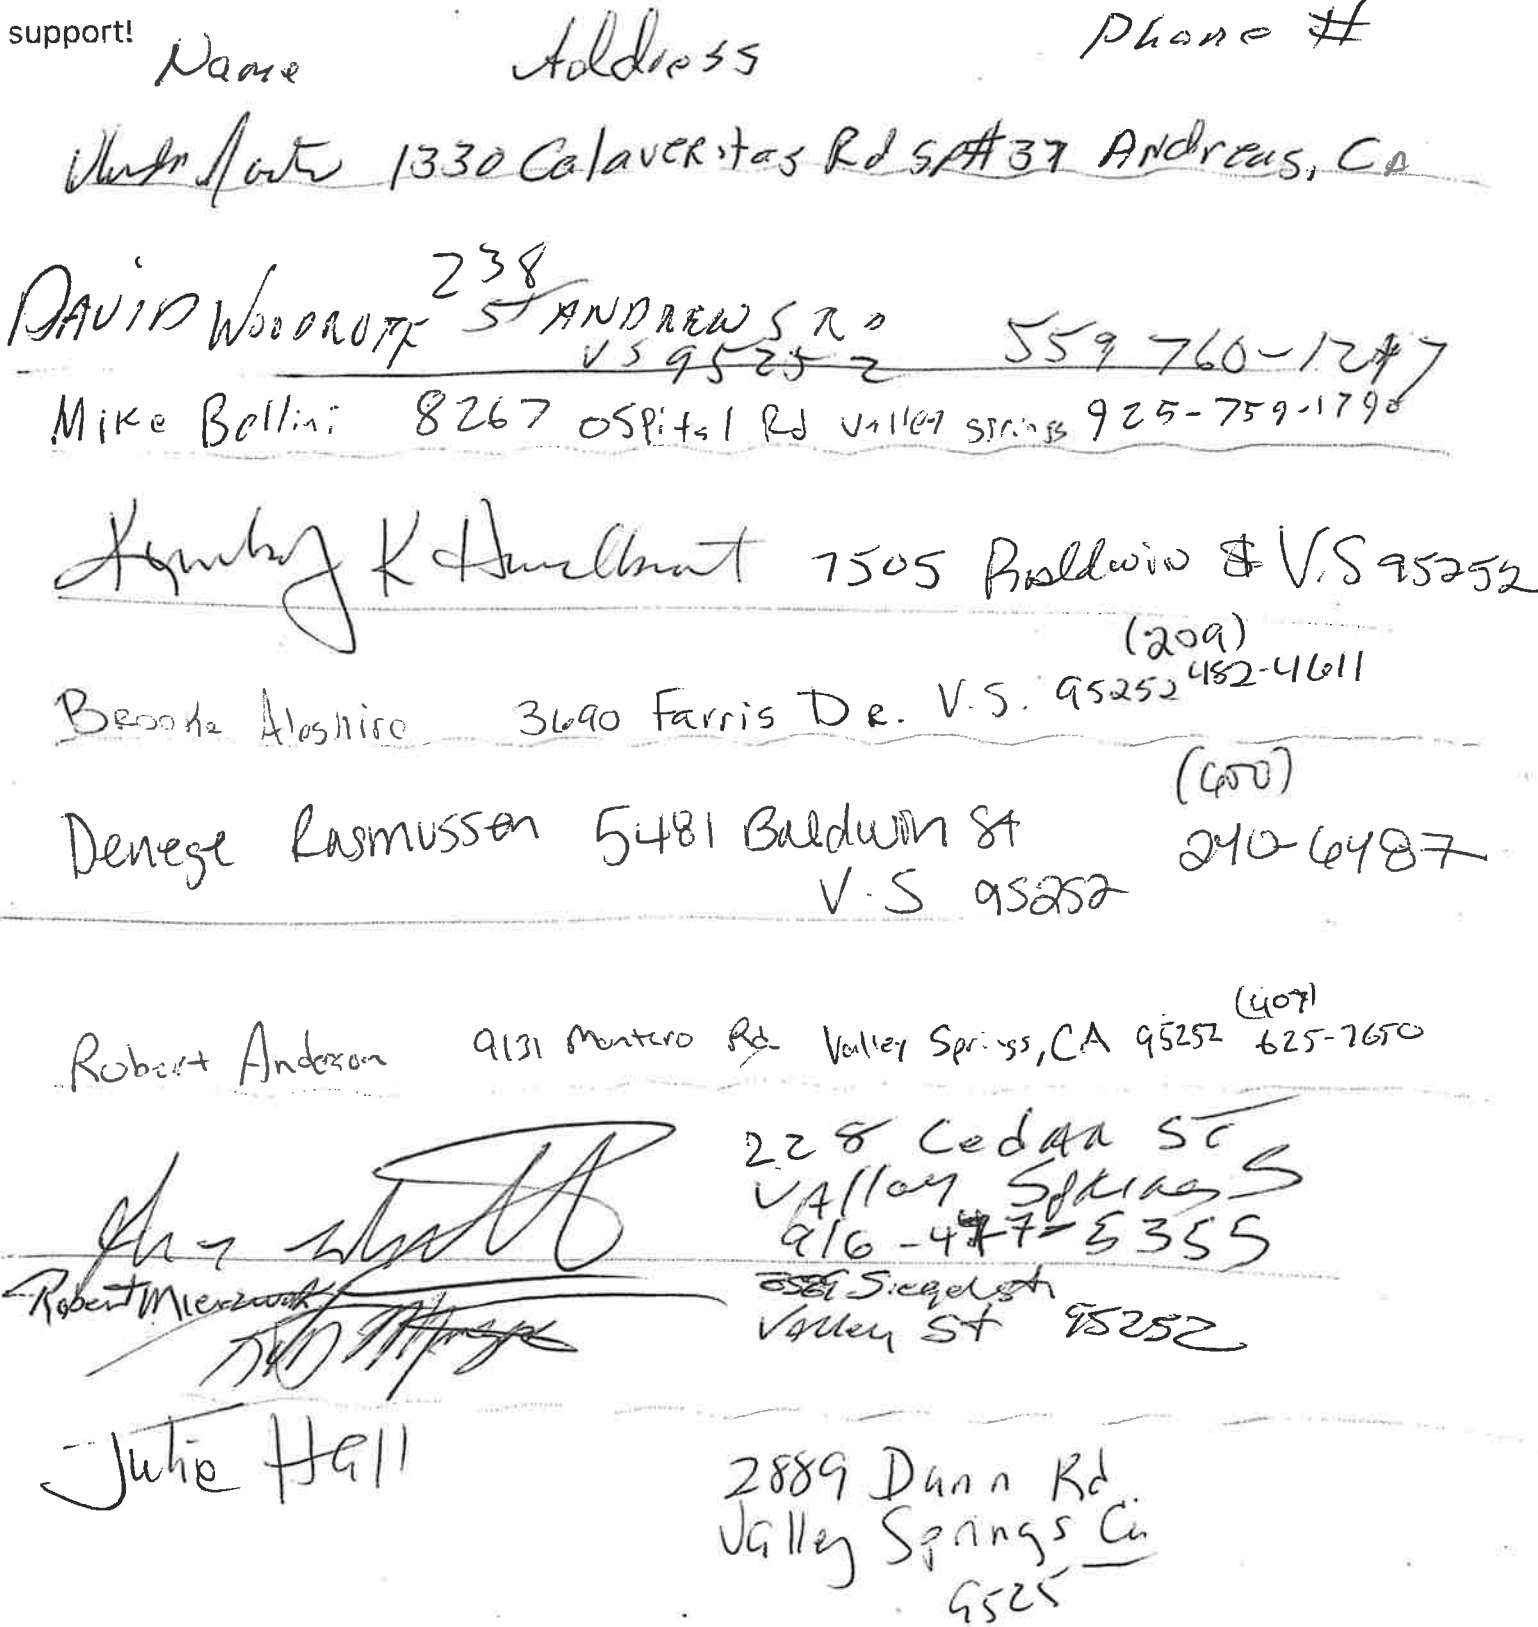 support!
Name Address Phone #
1330 Calaveritas Rd Sp#37 Andreas, Ca
238
DAViD WOODRUFF ST ANDREWS RD
VS 95252 559 760-1247
Mike Bellini 8267 OSPital Rd Valley Springs 925-759-1790
K 7505 Baldwin St V.S 95252
(209)
Brooke 3690 Farris DR. V.S. 95252 482-4611
(650)
Denege Rasmussen 5481 Baldwin St 240-6487
V.S 95252
(407)
Robert Anderson 9131 Montero Rd Valley Springs, CA 95252 625-7650
228 Cedar ST
VAlley Springs
916-477-5355
Robert
Valley St 95252
Julie Hall
2889 Dunn Rd.
Valley Springs Ca
9525